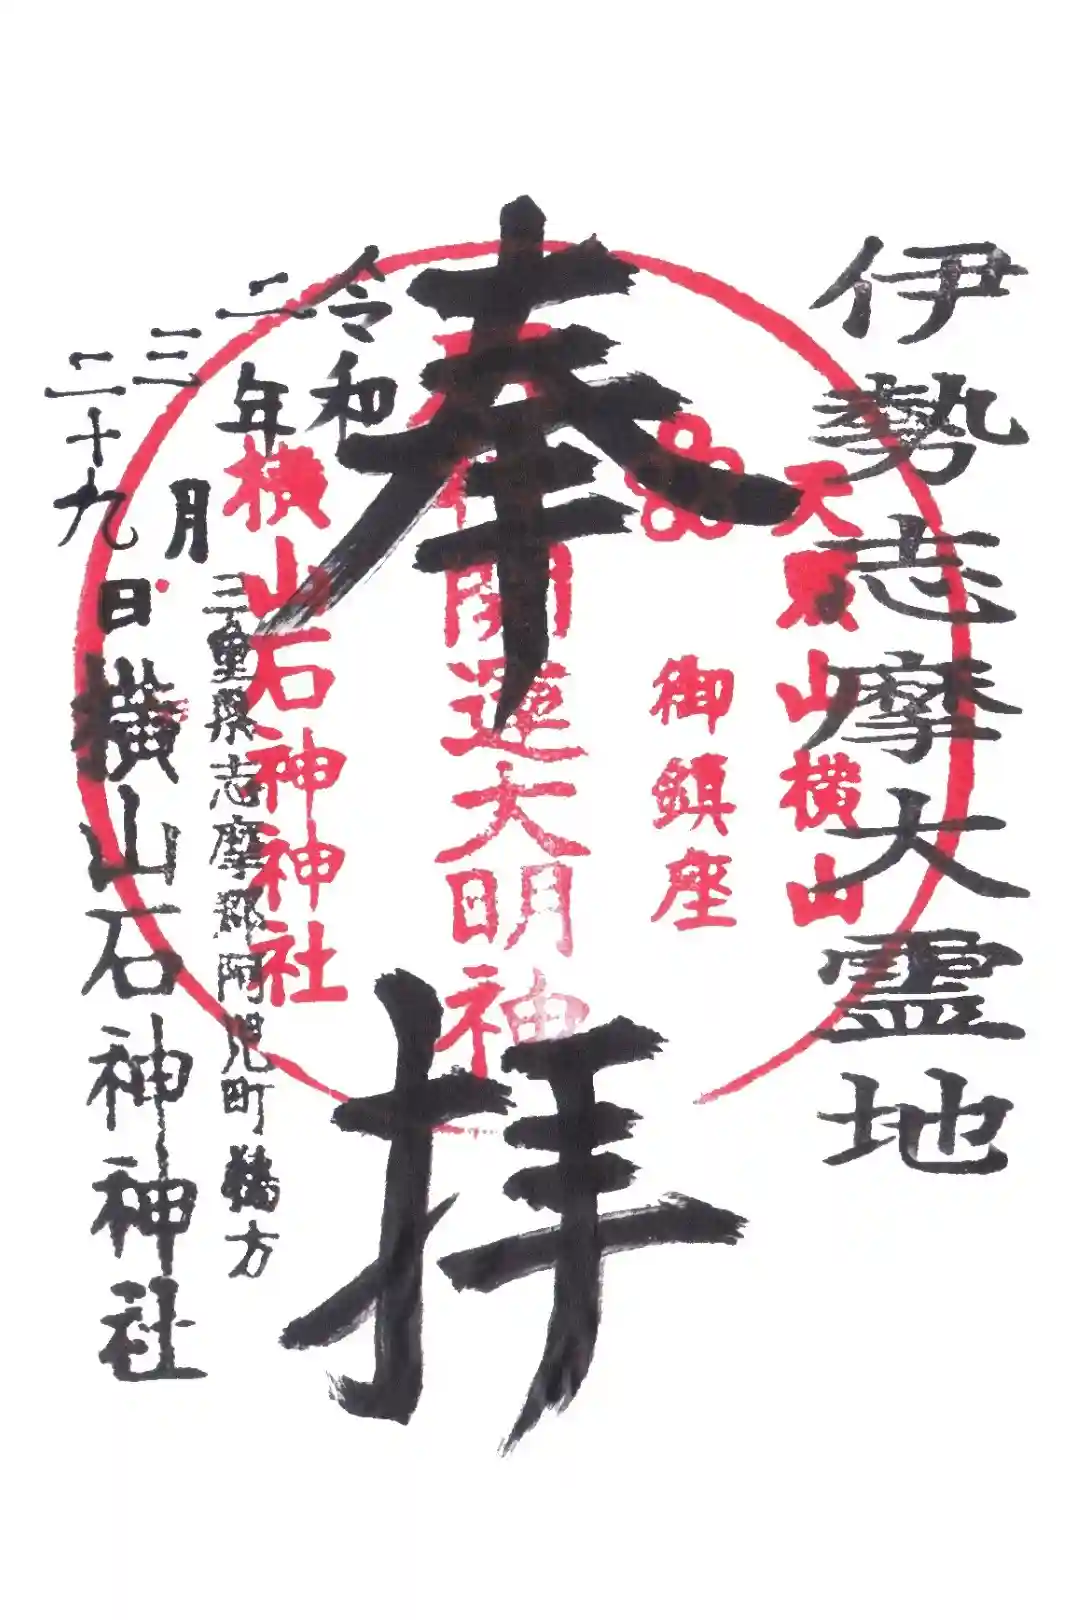 伊勢志摩大霊地
天照山横山
御鎮座
奉拝
開運大明神
令和二年三月二十九日
横山石神神社
三重県志摩郡阿児町鵜方
横山石神神社